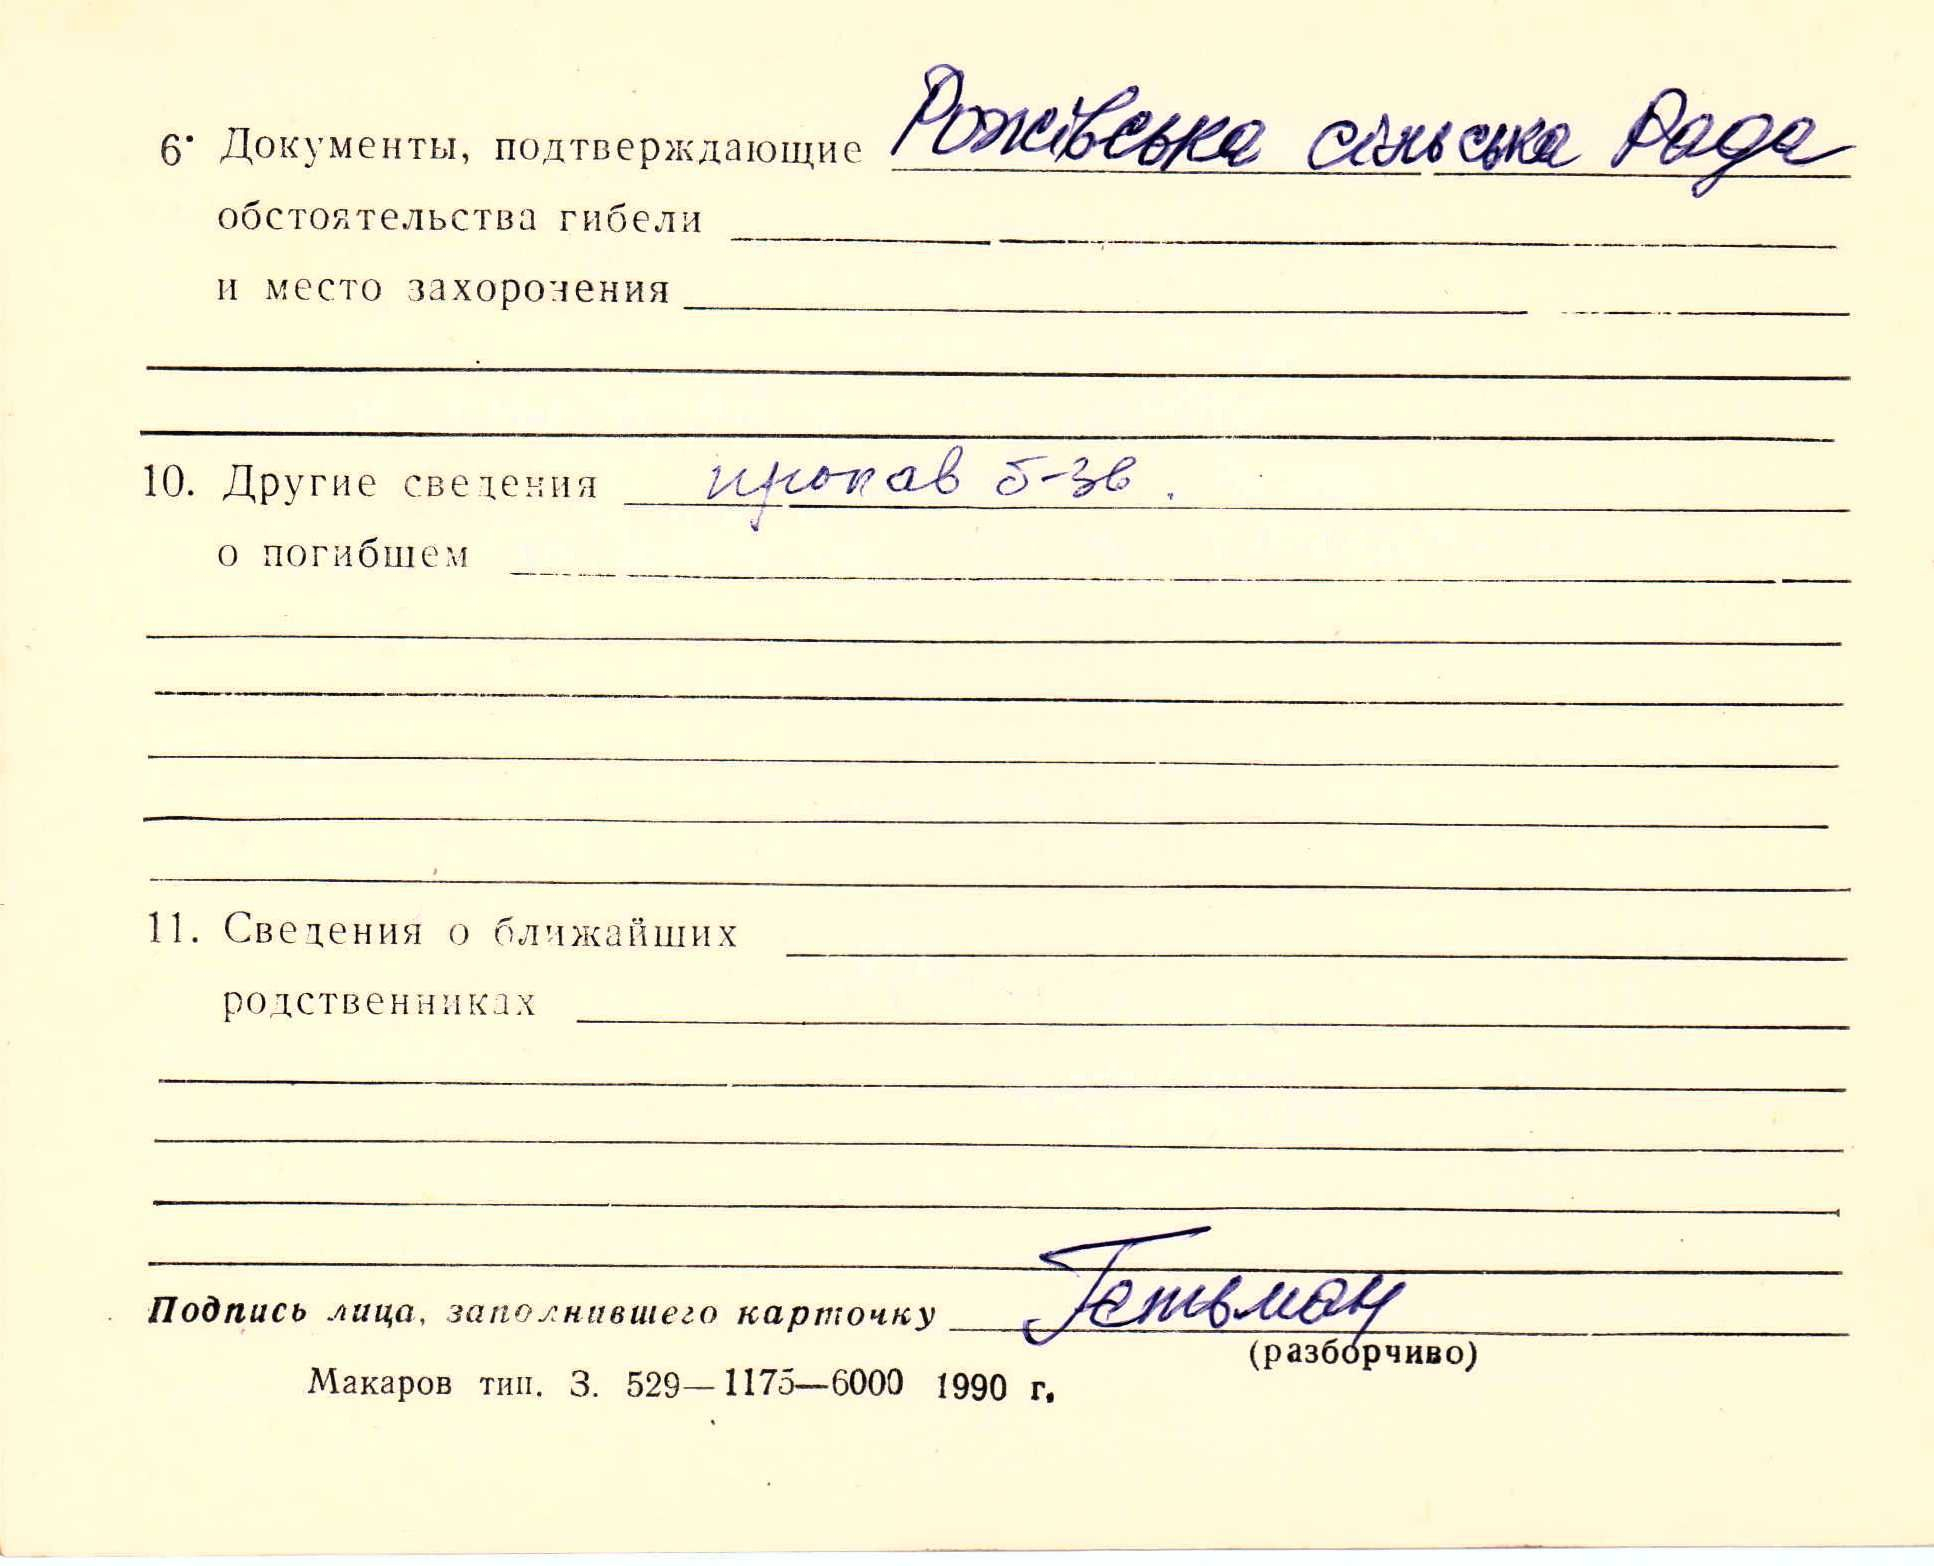 6. Документы, подтверждающие Рожівська сільська Рада
обстоятельства гибели
и место захоронения
10. Другие сведения пропав б-зв.
о погибшем
11. Сведения о ближайших
родственниках
Подпись лица, заполнившего карточку Гетьман
(разборчиво)
Макаров тип. З. 529—1175—6000 1990 г.